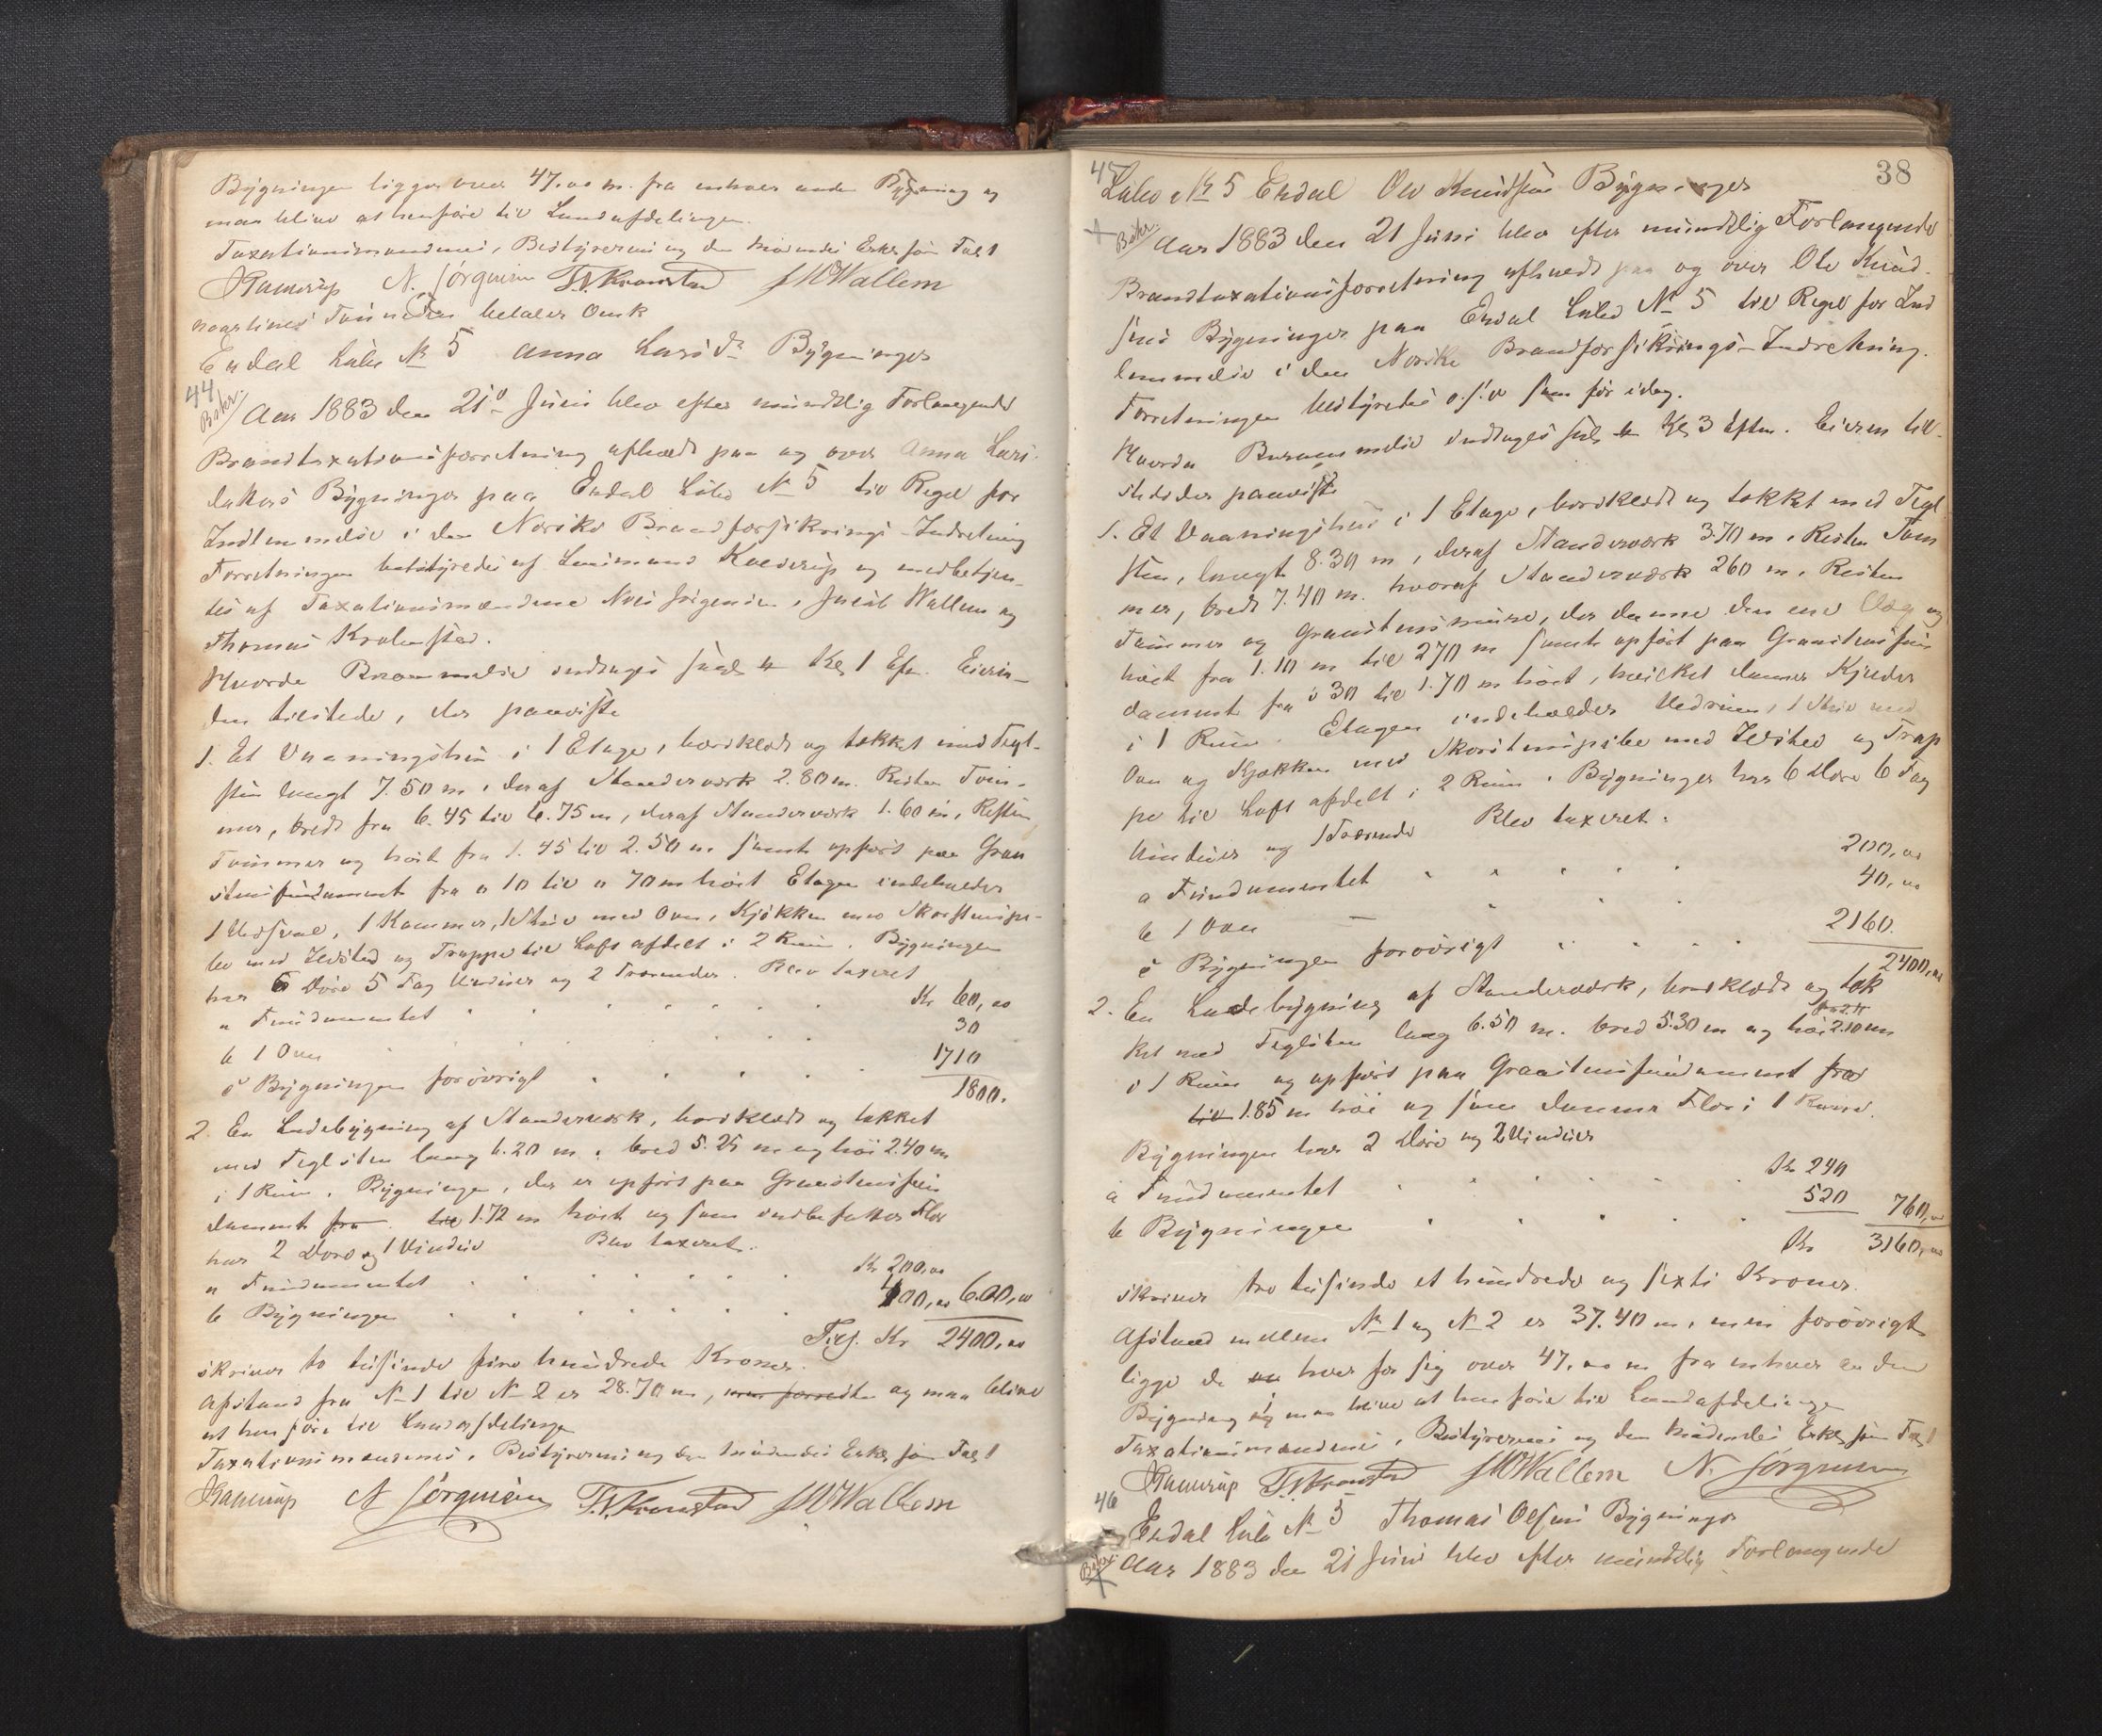 Bygningen ligger over 47,00 m. fra enhver anden Bygning og
man bliver at henføre til Landafdelingen.
Taxationsmændenes, Bestyrerens og den
N. Jørgensen T. Kronstad J M Wallem
betaler
Endal Lübr No 5 Anna Larsd. Bygninger
44
Aar 1883 den 21de Juni blev efter mundtlig Forlangende
Brandtaxationsforretning afholdt paa og over Anna Lars-
datters Bygninger paa Endal No 5 til Regel for
Indlemmelse i den Norske Brandforsikrings-Indretning
Forretningen bestyredes af Lensmand og medbetjen-
tes af Taxationsmændene Wallem og
Thomas
Hvorda Brammelse indtages Kl 1 Efm. Eierin-
den tilstede, der paaviste
1. Et Vaaningshus i 1 Etage, bordklædt og tækket med Tegl-
sten langt 7.50 m, deraf Standerværk 2.80 m. Resten Tøm-
mer, bredt fra 6.45 til 6.75 m, deraf Standerværk 1.60 m, Resten
Tømmer og høit fra 1.45 til 2.50 m samt opført paa Graa-
stensfundament fra 0 10 til 0 70 m høit Etagen indeholder
1 Kammer, 1 Stue med Ovn, Kjøkken med Skorstenspi-
be med Ildsted og Trappe til Loft afdelt i 2 Rum. Bygningen
har 6 Døre 5 Fag Vinduer og 2 Tværender. Blev taxeret
a Fundamentet Kr 60,00
b 1 Ovn 30
c Bygningen forøvrigt 1710
1800.
2. En Ladebygning af Standerværk, bordklædt og tækket
med Teglsten lang 6.20 m, bred 5.25 m og høi 2.40 m
i 1 Rum. Bygningen, der er opført paa Graastensfun-
dament fra til 1.72 m høit og som indbefatter Flor
har 2 Døre og 1 Vindue Blev taxeret.
a Fundamentet Kr 200,00
b Bygningen 400,00 600,00
Tils. Kr 2400,00
skriver to tusinde fire hundrede Kroner.
Afstand fra No 1 til No 2 er 28.70 m, og man bliver
at henføre til Landafdelingen
Taxationsmændenes, Bestyrerens og den
N Jørgensen T. Kronstad J M Wallem
38
45
No 5 Endal Ole Knudsens Bygninger
Aar 1883 den 21 Juni blev efter mundtlig Forlangende
Brandtaxationsforretning afholdt paa og over Ole Knud-
sens Bygninger paa Endal No 5 til Regel for Ind-
lemmelse i den Norske Brandforsikrings-Indretning.
Forretningen bestyredes o.s.v som før idag.
Hvorda indtages Kl 3 Eftm. Eieren til-
stede der paaviste
1. Et Vaaningshus i 1 Etage, bordklædt og tækket med Tegl-
sten, langt 8.30 m, deraf Standerværk 3.70 m, Resten Tøm-
mer, bredt 7.40 m. hvoraf Standerværk 260 m, Resten
Tømmer og Graastensmure, der danne den ene Væg og
høit fra 1.10 m til 270 m samt opført paa Graastensfun-
dament fra 0 30 til 1.70 m høit, hvilket danner Kjelder
i 1 Rum. Etagen indeholder Vedrum, 1 Stue med
Ovn og Kjøkken med Skorstenspibe med Ildsted og Trap-
pe til Loft afdelt i 2 Rum. Bygningen har 6 Døre 6 Fag
Vinduer og 1 Tværende Blev taxeret.
a Fundamentet 200,00
b 1 Ovn 40,00
c Bygningen forøvrigt 2160.
2400,00
2. En Ladebygning af Standerværk, bordklædt og tæk-
ket med Teglsten lang 6.50 m. bred 5.30 m og høi 2.10 m
i 1 Rum og opført paa Graastensfundament fra
til 1.85 m høi og som danner Flor i 1 Rum.
Bygningen har 2 Døre og 2 Vinduer
a Fundamentet Kr 240
b Bygningen 520 760,00
Kr 3160,00
skriver tre tusinde et hundrede og sexti Kroner.
Afstand mellem No 1 og No 2 er 37.40 m, men forøvrigt
ligge de hver for sig over 47,00 m fra enhver anden
Bygning og man bliver at henføre til Landafdelingen
Taxationsmændenes, Bestyrerens og den
T. Kronstad J M Wallem N. Jørgensen
46
Endal No 5 Thomas Olsens Bygninger
Aar 1883 den 21 Juni blev efter mundtlig Forlangende